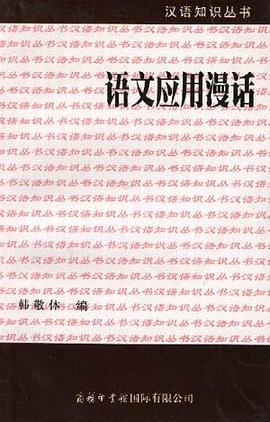 汉语知识丛书
语文应用漫话
韩敬体 编
商务印书馆国际有限公司